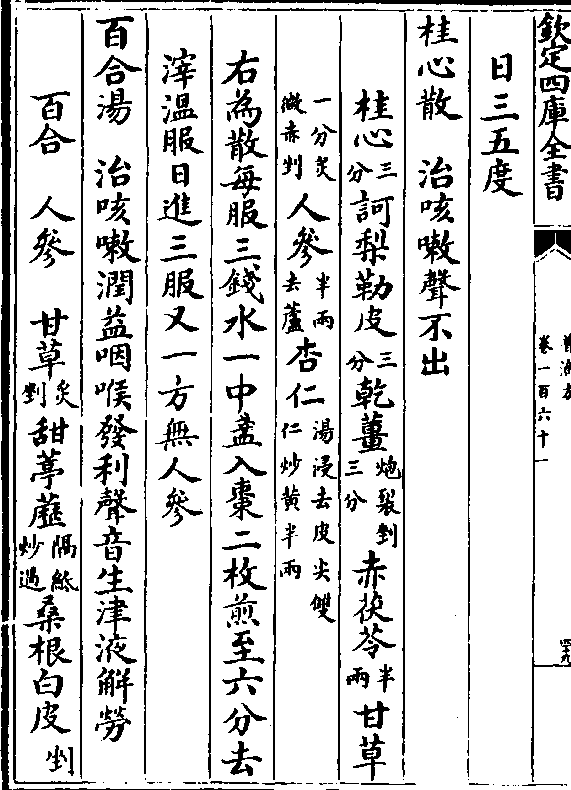 欽定四庫全書
卷一百六十一
日三五度
桂心散 治咳嗽聲不出
桂心三分 訶梨勒皮三分 乾薑炮裂剉三分 赤茯苓半兩 甘草
一分炙微赤剉 人參半兩去蘆 杏仁湯浸去皮尖雙仁炒黄半兩
右為散每服三錢水一中盞入棗二枚煎至六分去
滓溫服日進三服又一方無人參
百合湯 治咳嗽潤益咽喉發利聲音生津液解勞
百合 人參 甘草炙剉 甜葶藶隔紙炒過 桑根白皮剉